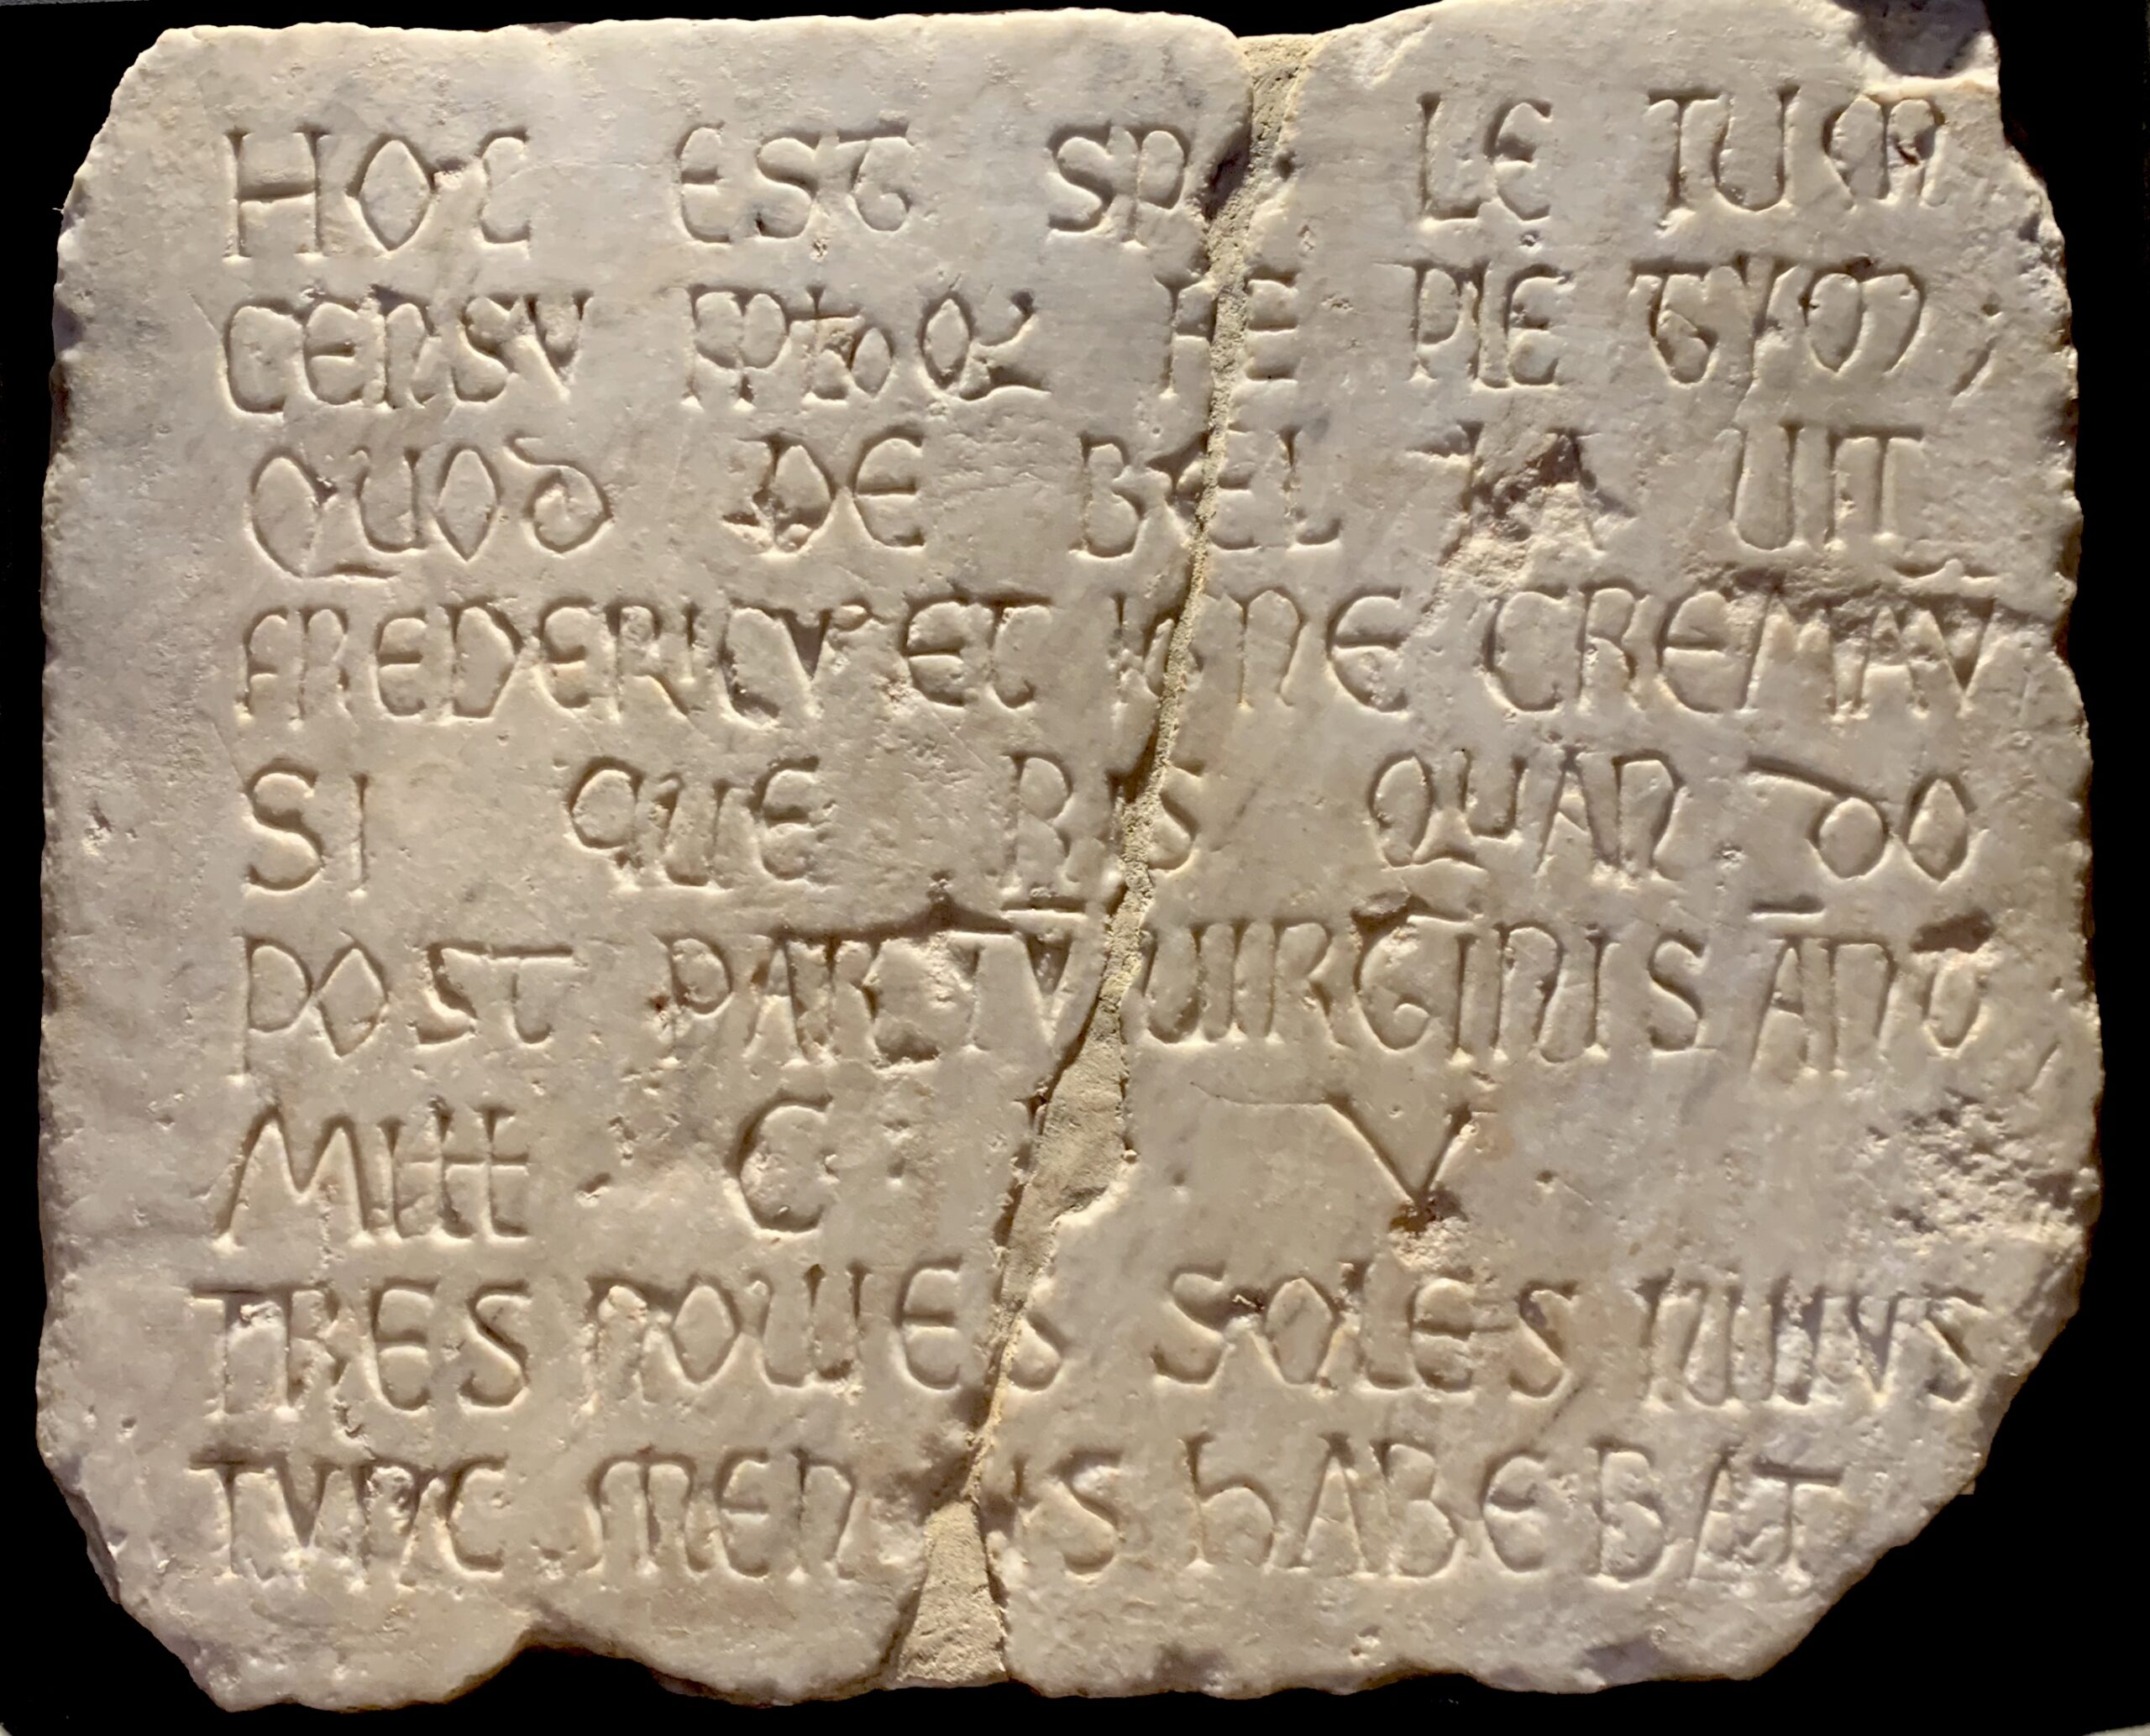 HOC EST SP LE TUM
CENSV RE PLE TVM
QUOD DE BEL LA UIT
FREDERICVS ET IGNE CREMAV
SI QUE RIS QUAN DO
POST PARTV UIRGINIS ANT
MILL C V
TRES NOUIES SOLES IUNIUS
TVNC MENSIS HABEBAT